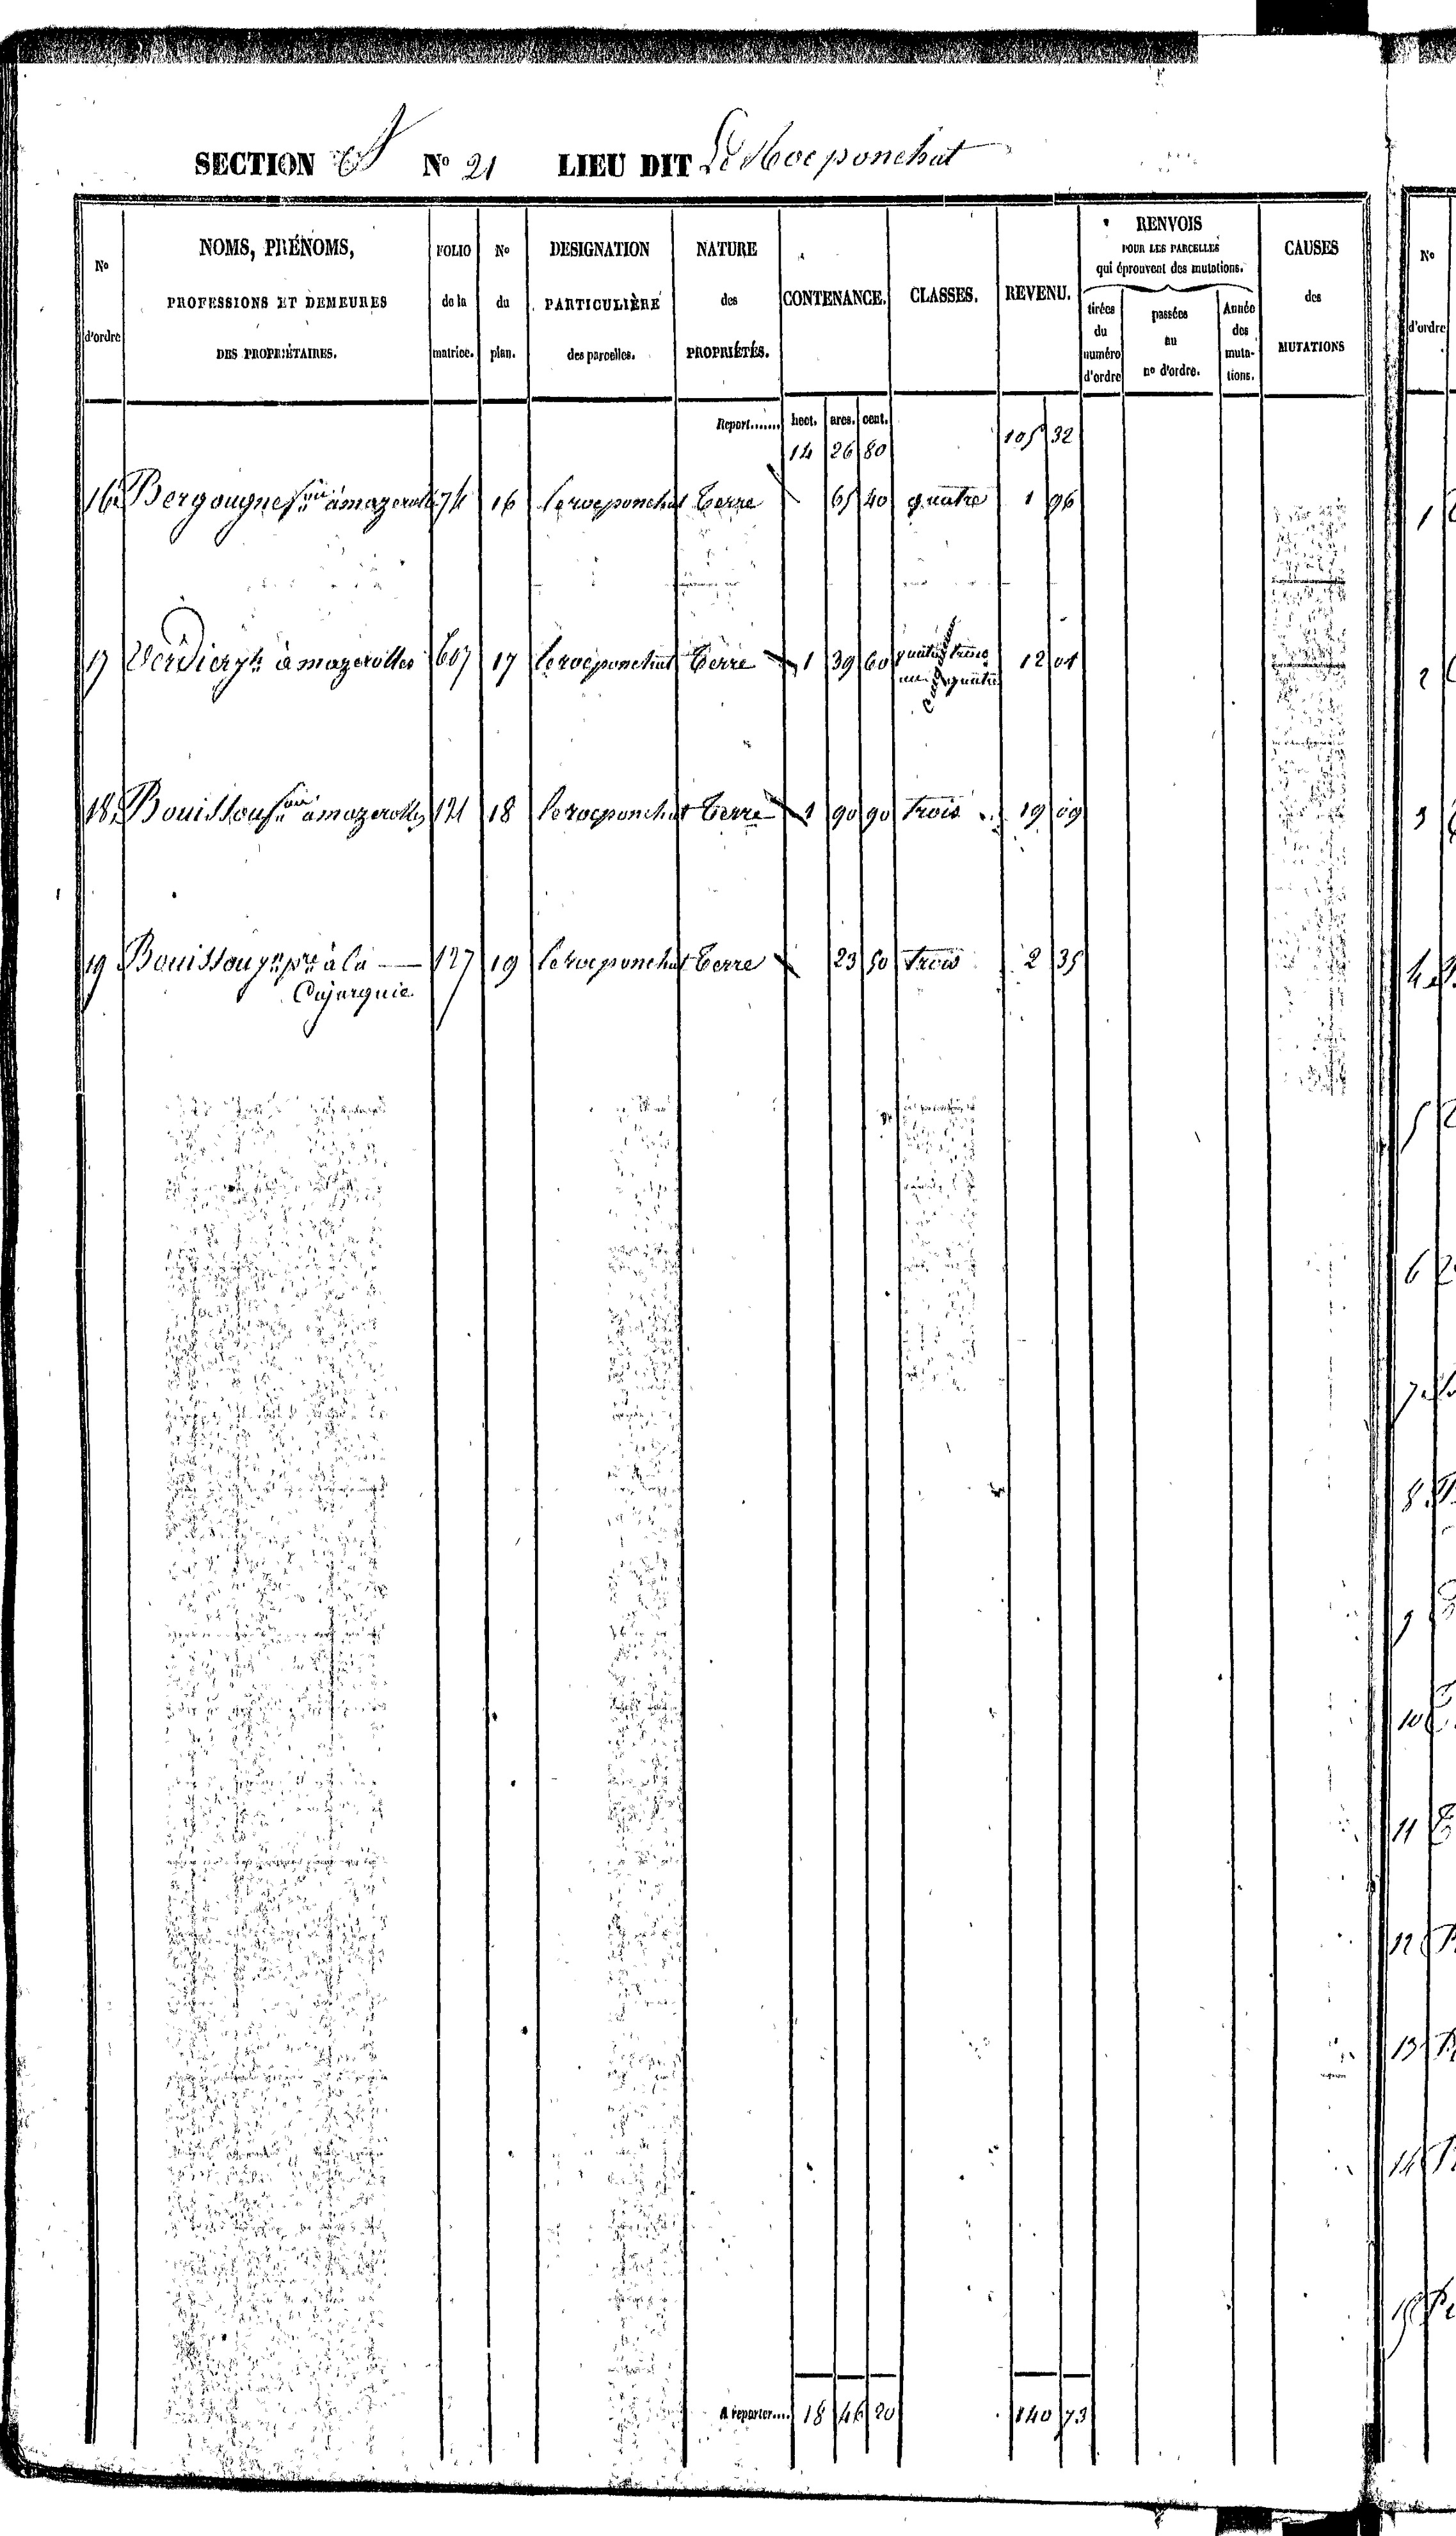 SECTION A Nº 21 LIEU DIT Le Rocponchut
Nº d'ordre
NOMS, PRÉNOMS, PROFESSIONS ET DEMEURES DES PROPRIÉTAIRES.
FOLIO de la matrice.
Nº du plan.
DESIGNATION PARTICULIÈRE des parcelles.
NATURE des PROPRIÉTÉS.
CONTENANCE.
CLASSES.
REVENU.
RENVOIS POUR LES PARCELLES qui éprouvent des mutations.
tirées du numéro d'ordre
passées au nº d'ordre.
Année des mutations.
CAUSES des MUTATIONS
Nº d'ordre
Report....... hect. ares. cent.
14 26 80 105 32
16 Bergougne à mazerolles 74 16 le rocponchut Terre 65 40 quatre 1 96
17 Verdier à mazerolles 607 17 le rocponchut Terre 1 39 60 12 01
18 Bouissou à mazerolles 121 18 le rocponchut Terre 1 90 90 Trois 19 09
19 Bouissou pre à la 127 19 le rocponchut Terre 23 50 Trois 2 35
Cajarguie
A reporter.... 18 46 20 140 73
1
2
3
4
5
6
7
8
9
10
11
12
13
14
15